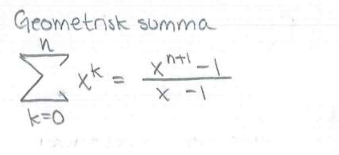 Geometrisk summa
n
∑ x^k = (x^(n+1) - 1) / (x - 1)
k=0